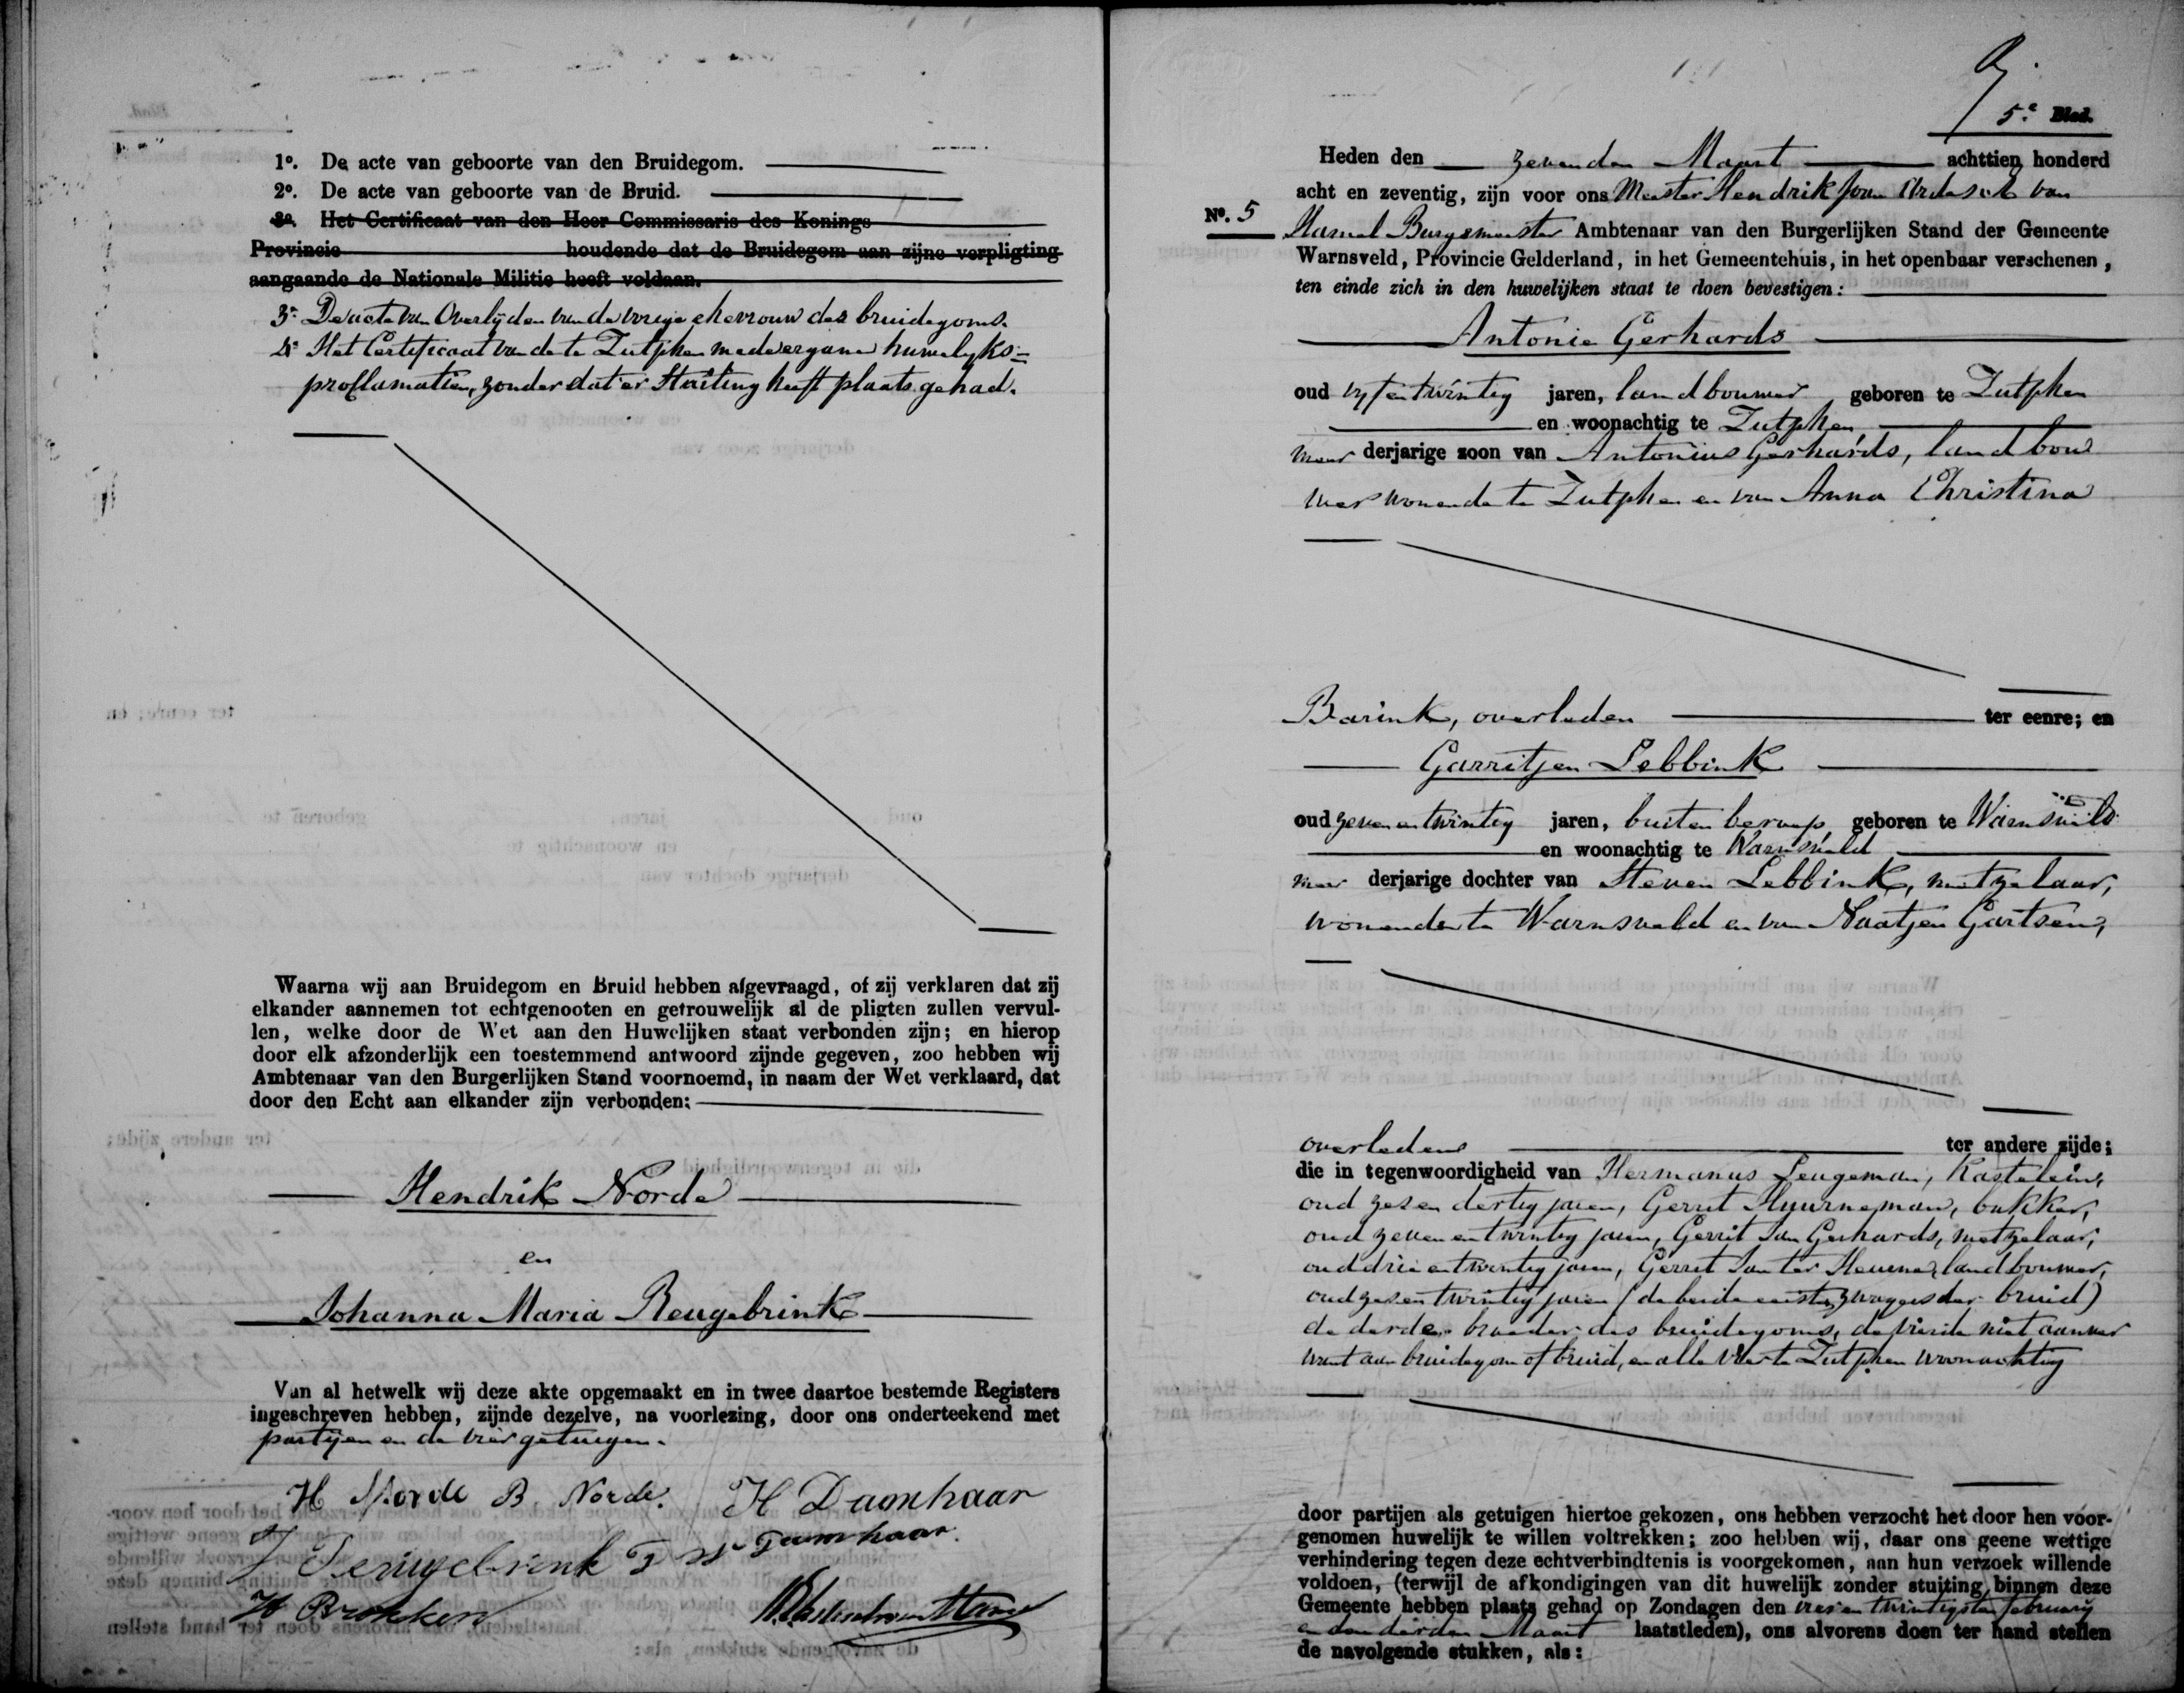 1º. De acte van geboorte van den Bruidegom.
2º. De acte van geboorte van de Bruid.
3º. Het Certificaat van den Heer Commissaris des Konings
Provincie houdende dat de Bruidegom aan zijne verpligting
aangaande de Nationale Militie heeft voldaan.
3º De acte van Overlijden van de vorige ehevrouw des bruidegoms.
4º Het Certificaat van de te Zutphen mede ergane huwelyks=
proclamatien, zonder dat er Stuiting heeft plaats gehad.
Waarna wij aan Bruidegom en Bruid hebben afgevraagd, of zij verklaren dat zij
elkander aannemen tot echtgenooten en getrouwelijk al de pligten zullen vervul-
len, welke door de Wet aan den Huwelijken staat verbonden zijn; en hierop
door elk afzonderlijk een toestemmend antwoord zijnde gegeven, zoo hebben wij
Ambtenaar van den Burgerlijken Stand voornoemd, in naam der Wet verklaard, dat
door den Echt aan elkander zijn verbonden:
Hendrik Norde
en
Johanna Maria Reugebrink
Van al hetwelk wij deze akte opgemaakt en in twee daartoe bestemde Registers
ingeschreven hebben, zijnde dezelve, na voorlezing, door ons onderteekend met
partijen en de vier getuigen.
H Norde B. Norde. H Damhaar
Damhaar.
H Brokken
5e Blad.
Heden den zevenden Maart achttien honderd
acht en zeventig, zijn voor ons Meester Hendrik Jan Ardesch van
Nº. 5
Hamel Burgemeester Ambtenaar van den Burgerlijken Stand der Gemeente
Warnsveld, Provincie Gelderland, in het Gemeentehuis, in het openbaar verschenen,
ten einde zich in den huwelijken staat te doen bevestigen:
Antonie Gerhards
oud vyfentwintig jaren, landbouwer geboren te Zutphen
en woonachtig te Zutphen
meer derjarige zoon van Antonius Gerhards, landbou
wer wonende te Zutphen en van Anna Christina
Barink, overleden ter eenre; en
Garritjen Lebbink
oud zeven en twintig jaren, buiten beroep, geboren te Warnsveld
en woonachtig te Warnsveld
meer derjarige dochter van Steven Lebbink, metzelaar,
wonende te Warnsveld en van Naatjen Gartsen,
overleden ter andere zijde;
die in tegenwoordigheid van Hermanus Leugeman, Kastelein,
oud zes en dertig jaren, Gerrit Huurneman, bakker,
oud zeven en twintig jaren, Gerrit Jan Gerhards, metzelaar,
oud drie en twintig jaren, Gerrit Jan ter Heurne, landbouwer,
oud zes en twintig jaren (de beide eersten zwagers der bruid)
de derde broeder des bruidegoms, de vierde niet aanver
want aan bruidegom of bruid, en alle vier te Zutphen woonachtig
door partijen als getuigen hiertoe gekozen, ons hebben verzocht het door hen voor-
genomen huwelijk te willen voltrekken; zoo hebben wij, daar ons geene wettige
verhindering tegen deze echtverbindtenis is voorgekomen, aan hun verzoek willende
voldoen, (terwijl de afkondigingen van dit huwelijk zonder stuiting binnen deze
Gemeente hebben plaats gehad op Zondagen den vier en twintigsten february
en den derden Maart laatstleden), ons alvorens doen ter hand stellen
de navolgende stukken, als: